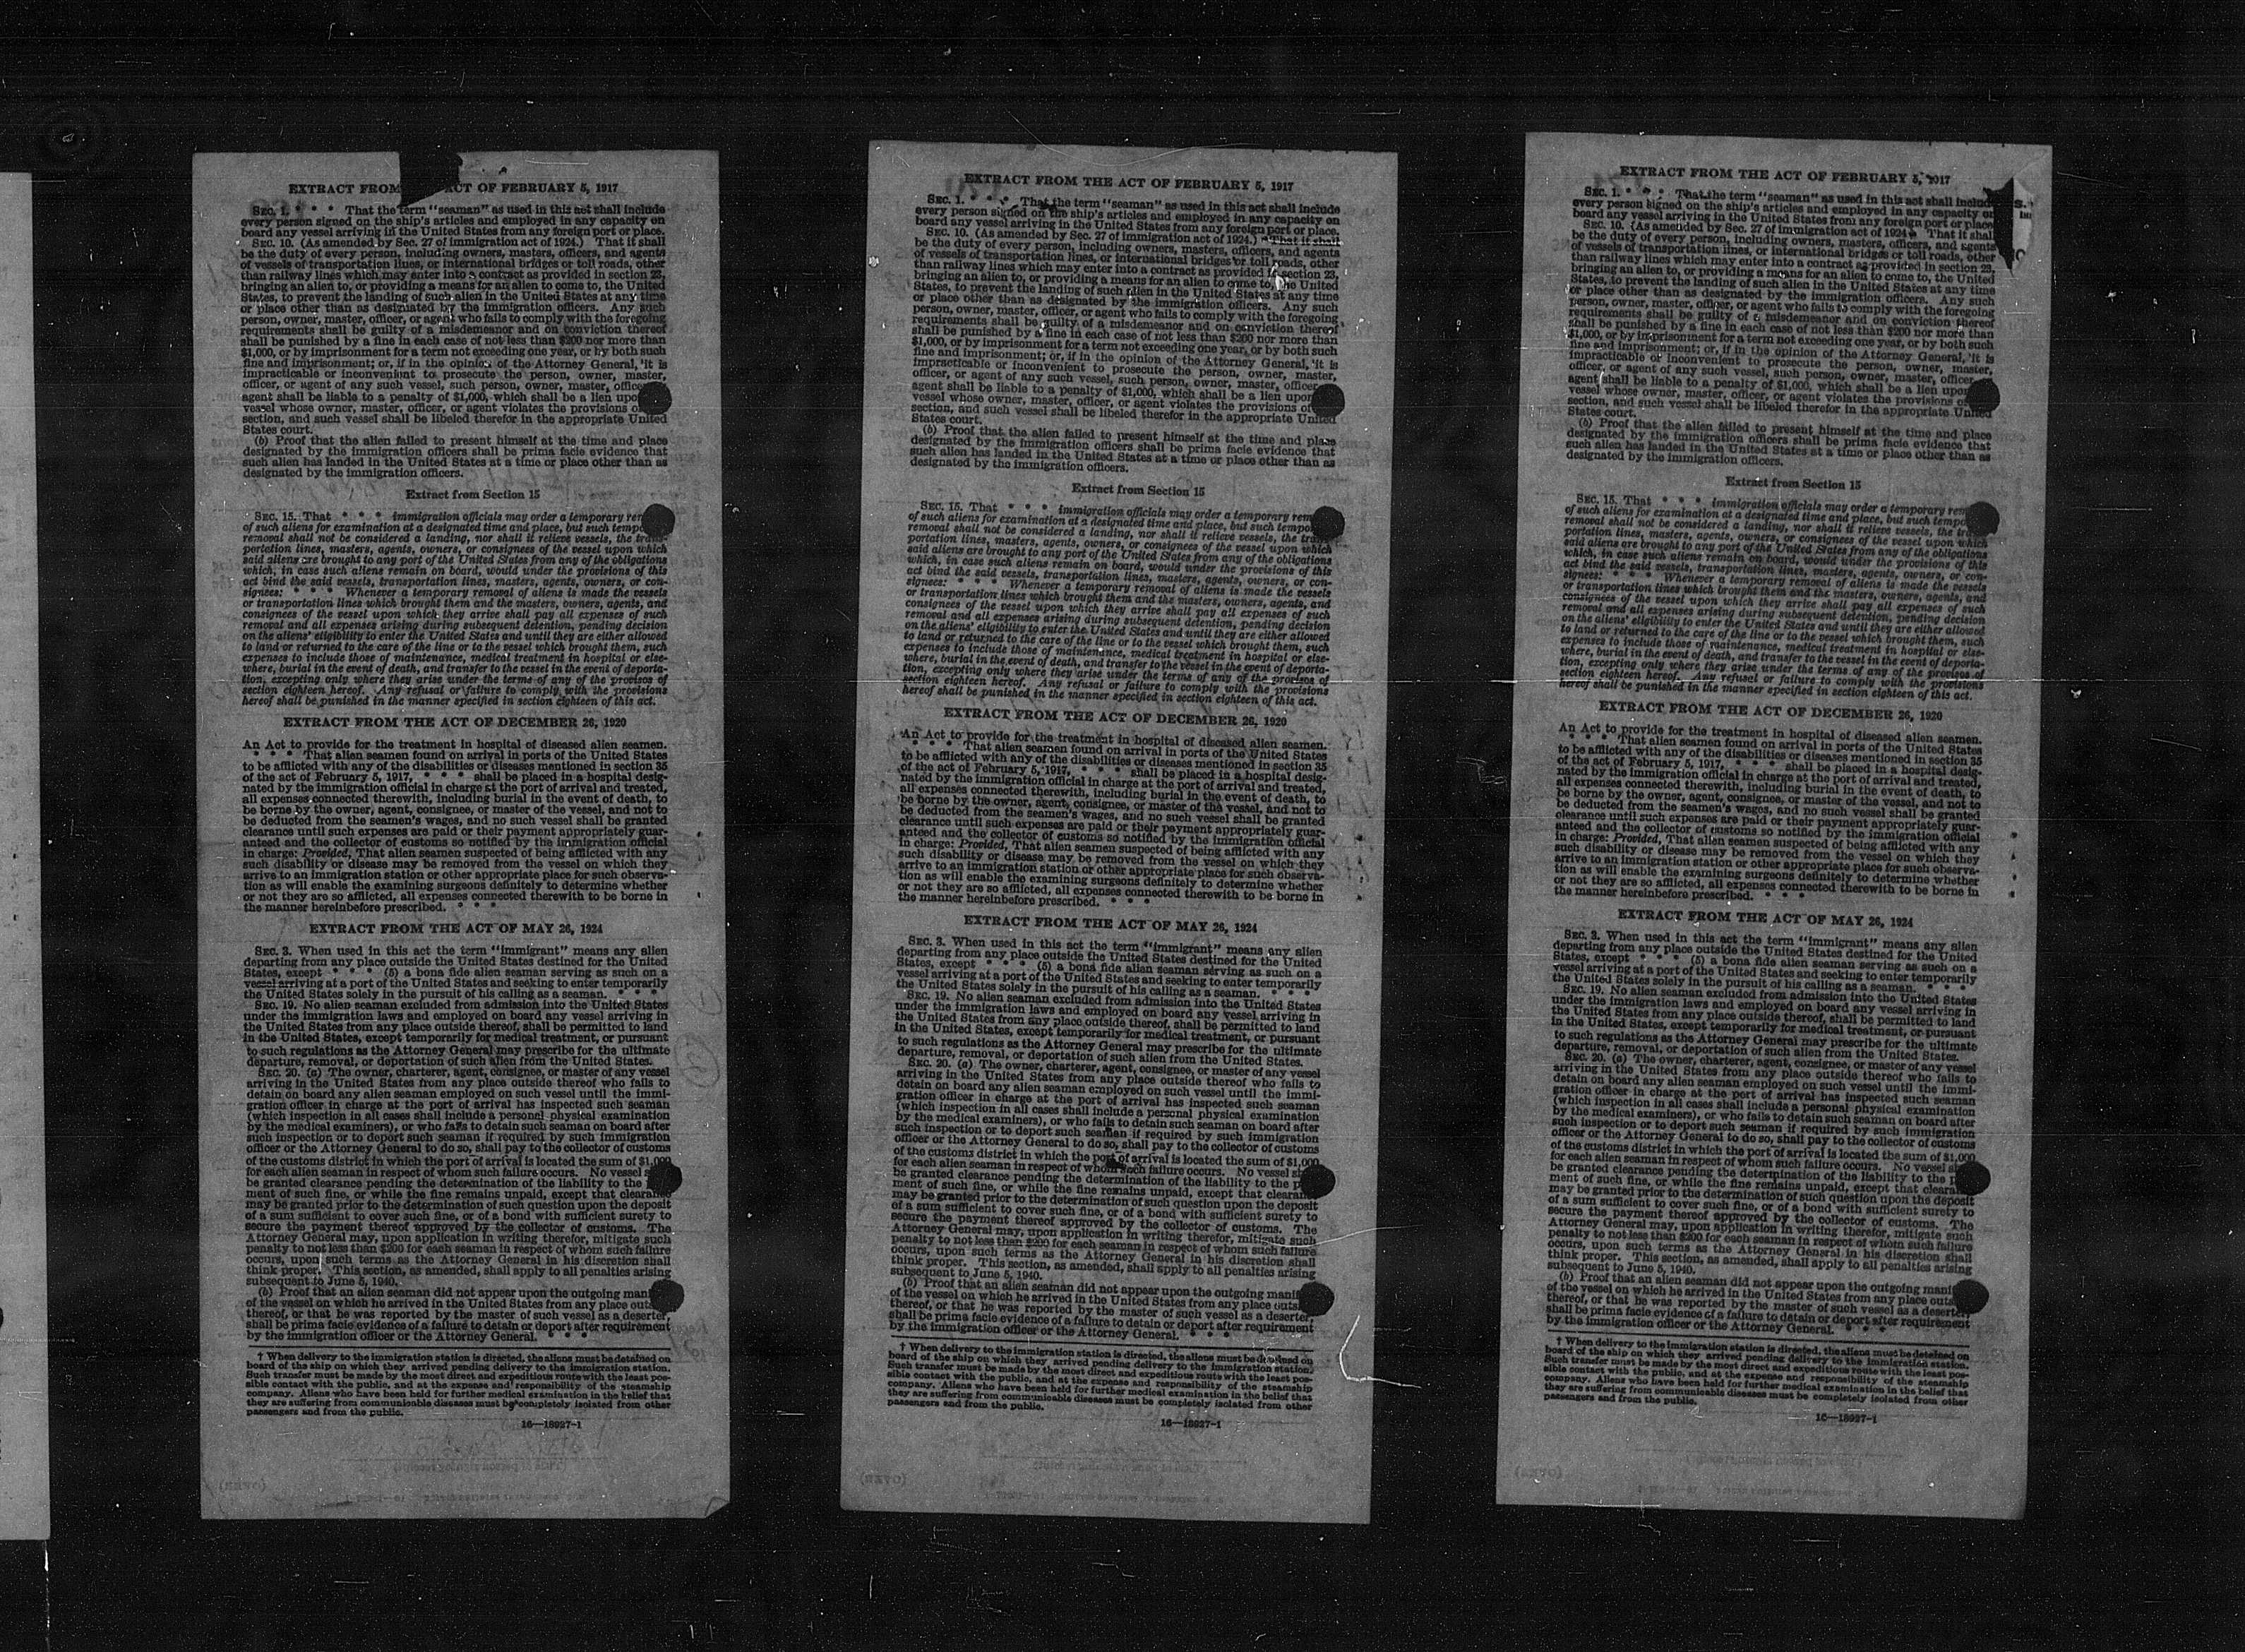 EXTRACT FROM ACT OF FEBRUARY 5, 1917
SEC. 1. * * * That the term "seaman" as used in this act shall include
every person signed on the ship's articles and employed in any capacity on
board any vessel arriving in the United States from any foreign port or place.
SEC. 10. (As amended by Sec. 27 of immigration act of 1924.) That it shall
be the duty of every person, including owners, masters, officers, and agents
of vessels of transportation lines, or international bridges or toll roads, other
than railway lines which may enter into a contract as provided in section 23,
bringing an alien to, or providing a means for an alien to come to, the United
States, to prevent the landing of such alien in the United States at any time
or place other than as designated by the immigration officers. Any such
person, owner, master, officer, or agent who fails to comply with the foregoing
requirements shall be guilty of a misdemeanor and on conviction thereof
shall be punished by a fine in each case of not less than $200 nor more than
$1,000, or by imprisonment for a term not exceeding one year, or by both such
fine and imprisonment; or, if in the opinion of the Attorney General, it is
impracticable or inconvenient to prosecute the person, owner, master,
officer, or agent of any such vessel, such person, owner, master, office
agent shall be liable to a penalty of $1,000, which shall be a lien upo
vessel whose owner, master, officer, or agent violates the provisions o
section, and such vessel shall be libeled therefor in the appropriate United
States court.
(b) Proof that the alien failed to present himself at the time and place
designated by the immigration officers shall be prima facie evidence that
such alien has landed in the United States at a time or place other than as
designated by the immigration officers.
Extract from Section 15
SEC. 15. That * * * immigration officials may order a temporary rem
of such aliens for examination at a designated time and place, but such tempo
removal shall not be considered a landing, nor shall it relieve vessels, the trans-
portation lines, masters, agents, owners, or consignees of the vessel upon which
said aliens are brought to any port of the United States from any of the obligations
which, in case such aliens remain on board, would under the provisions of this
act bind the said vessels, transportation lines, masters, agents, owners, or con-
signees: * * * Whenever a temporary removal of aliens is made the vessels
or transportation lines which brought them and the masters, owners, agents, and
consignees of the vessel upon which they arrive shall pay all expenses of such
removal and all expenses arising during subsequent detention, pending decision
on the aliens' eligibility to enter the United States and until they are either allowed
to land or returned to the care of the line or to the vessel which brought them, such
expenses to include those of maintenance, medical treatment in hospital or else-
where, burial in the event of death, and transfer to the vessel in the event of deporta-
tion, excepting only where they arise under the terms of any of the provisos of
section eighteen hereof. Any refusal or failure to comply with the provisions
hereof shall be punished in the manner specified in section eighteen of this act.
EXTRACT FROM THE ACT OF DECEMBER 26, 1920
An Act to provide for the treatment in hospital of diseased alien seamen.
* * * That alien seamen found on arrival in ports of the United States
to be afflicted with any of the disabilities or diseases mentioned in section 35
of the act of February 5, 1917, * * * shall be placed in a hospital desig-
nated by the immigration official in charge at the port of arrival and treated,
all expenses connected therewith, including burial in the event of death, to
be borne by the owner, agent, consignee, or master of the vessel, and not to
be deducted from the seamen's wages, and no such vessel shall be granted
clearance until such expenses are paid or their payment appropriately guar-
anteed and the collector of customs so notified by the immigration official
in charge: Provided, That alien seamen suspected of being afflicted with any
such disability or disease may be removed from the vessel on which they
arrive to an immigration station or other appropriate place for such observa-
tion as will enable the examining surgeons definitely to determine whether
or not they are so afflicted, all expenses connected therewith to be borne in
the manner hereinbefore prescribed. * * *
EXTRACT FROM THE ACT OF MAY 26, 1924
SEC. 3. When used in this act the term "immigrant" means any alien
departing from any place outside the United States destined for the United
States, except * * * (5) a bona fide alien seaman serving as such on a
vessel arriving at a port of the United States and seeking to enter temporarily
the United States solely in the pursuit of his calling as a seaman. * * *
SEC. 19. No alien seaman excluded from admission into the United States
under the immigration laws and employed on board any vessel arriving in
the United States from any place outside thereof, shall be permitted to land
in the United States, except temporarily for medical treatment, or pursuant
to such regulations as the Attorney General may prescribe for the ultimate
departure, removal, or deportation of such alien from the United States.
SEC. 20. (a) The owner, charterer, agent, consignee, or master of any vessel
arriving in the United States from any place outside thereof who fails to
detain on board any alien seaman employed on such vessel until the immi-
gration officer in charge at the port of arrival has inspected such seaman
(which inspection in all cases shall include a personal physical examination
by the medical examiners), or who fails to detain such seaman on board after
such inspection or to deport such seaman if required by such immigration
officer or the Attorney General to do so, shall pay to the collector of customs
of the customs district in which the port of arrival is located the sum of $1,000
for each alien seaman in respect of whom such failure occurs. No vessel s
be granted clearance pending the determination of the liability to the
ment of such fine, or while the fine remains unpaid, except that clearance
may be granted prior to the determination of such question upon the deposit
of a sum sufficient to cover such fine, or of a bond with sufficient surety to
secure the payment thereof approved by the collector of customs. The
Attorney General may, upon application in writing therefor, mitigate such
penalty to not less than $200 for each seaman in respect of whom such failure
occurs, upon such terms as the Attorney General in his discretion shall
think proper. This section, as amended, shall apply to all penalties arising
subsequent to June 5, 1940.
(b) Proof that an alien seaman did not appear upon the outgoing mani
of the vessel on which he arrived in the United States from any place outs
thereof, or that he was reported by the master of such vessel as a deserter,
shall be prima facie evidence of a failure to detain or deport after requirement
by the immigration officer or the Attorney General. * * *
† When delivery to the immigration station is directed, the aliens must be detained on
board of the ship on which they arrived pending delivery to the immigration station.
Such transfer must be made by the most direct and expeditious route with the least pos-
sible contact with the public, and at the expense and responsibility of the steamship
company. Aliens who have been held for further medical examination in the belief that
they are suffering from communicable diseases must be completely isolated from other
passengers and from the public.
16—18927-1
EXTRACT FROM THE ACT OF FEBRUARY 5, 1917
SEC. 1. * * * That the term "seaman" as used in this act shall include
every person signed on the ship's articles and employed in any capacity on
board any vessel arriving in the United States from any foreign port or place.
SEC. 10. (As amended by Sec. 27 of immigration act of 1924.) That it shall
be the duty of every person, including owners, masters, officers, and agents
of vessels of transportation lines, or international bridges or toll roads, other
than railway lines which may enter into a contract as provided if section 23,
bringing an alien to, or providing a means for an alien to come to, the United
States, to prevent the landing of such alien in the United States at any time
or place other than as designated by the immigration officers. Any such
person, owner, master, officer, or agent who fails to comply with the foregoing
requirements shall be guilty of a misdemeanor and on conviction thereof
shall be punished by a fine in each case of not less than $200 nor more than
$1,000, or by imprisonment for a term not exceeding one year, or by both such
fine and imprisonment; or, if in the opinion of the Attorney General, it is
impracticable or inconvenient to prosecute the person, owner, master,
officer, or agent of any such vessel, such person, owner, master, officer
agent shall be liable to a penalty of $1,000, which shall be a lien upon
vessel whose owner, master, officer, or agent violates the provisions of
section, and such vessel shall be libeled therefor in the appropriate United
States court.
(b) Proof that the alien failed to present himself at the time and place
designated by the immigration officers shall be prima facie evidence that
such alien has landed in the United States at a time or place other than as
designated by the immigration officers.
Extract from Section 15
SEC. 15. That * * * immigration officials may order a temporary rem
of such aliens for examination at a designated time and place, but such tempo
removal shall not be considered a landing, nor shall it relieve vessels, the trans-
portation lines, masters, agents, owners, or consignees of the vessel upon which
said aliens are brought to any port of the United States from any of the obligations
which, in case such aliens remain on board, would under the provisions of this
act bind the said vessels, transportation lines, masters, agents, owners, or con-
signees: * * * Whenever a temporary removal of aliens is made the vessels
or transportation lines which brought them and the masters, owners, agents, and
consignees of the vessel upon which they arrive shall pay all expenses of such
removal and all expenses arising during subsequent detention, pending decision
on the aliens' eligibility to enter the United States and until they are either allowed
to land or returned to the care of the line or to the vessel which brought them, such
expenses to include those of maintenance, medical treatment in hospital or else-
where, burial in the event of death, and transfer to the vessel in the event of deporta-
tion, excepting only where they arise under the terms of any of the provisos of
section eighteen hereof. Any refusal or failure to comply with the provisions
hereof shall be punished in the manner specified in section eighteen of this act.
EXTRACT FROM THE ACT OF DECEMBER 26, 1920
An Act to provide for the treatment in hospital of diseased alien seamen.
* * * That alien seamen found on arrival in ports of the United States
to be afflicted with any of the disabilities or diseases mentioned in section 35
of the act of February 5, 1917, * * * shall be placed in a hospital desig-
nated by the immigration official in charge at the port of arrival and treated,
all expenses connected therewith, including burial in the event of death, to
be borne by the owner, agent, consignee, or master of the vessel, and not to
be deducted from the seamen's wages, and no such vessel shall be granted
clearance until such expenses are paid or their payment appropriately guar-
anteed and the collector of customs so notified by the immigration official
in charge: Provided, That alien seamen suspected of being afflicted with any
such disability or disease may be removed from the vessel on which they
arrive to an immigration station or other appropriate place for such observa-
tion as will enable the examining surgeons definitely to determine whether
or not they are so afflicted, all expenses connected therewith to be borne in
the manner hereinbefore prescribed. * * *
EXTRACT FROM THE ACT OF MAY 26, 1924
SEC. 3. When used in this act the term "immigrant" means any alien
departing from any place outside the United States destined for the United
States, except * * * (5) a bona fide alien seaman serving as such on a
vessel arriving at a port of the United States and seeking to enter temporarily
the United States solely in the pursuit of his calling as a seaman. * * *
SEC. 19. No alien seaman excluded from admission into the United States
under the immigration laws and employed on board any vessel arriving in
the United States from any place outside thereof, shall be permitted to land
in the United States, except temporarily for medical treatment, or pursuant
to such regulations as the Attorney General may prescribe for the ultimate
departure, removal, or deportation of such alien from the United States.
SEC. 20. (a) The owner, charterer, agent, consignee, or master of any vessel
arriving in the United States from any place outside thereof who fails to
detain on board any alien seaman employed on such vessel until the immi-
gration officer in charge at the port of arrival has inspected such seaman
(which inspection in all cases shall include a personal physical examination
by the medical examiners), or who fails to detain such seaman on board after
such inspection or to deport such seaman if required by such immigration
officer or the Attorney General to do so, shall pay to the collector of customs
of the customs district in which the port of arrival is located the sum of $1,000
for each alien seaman in respect of whom such failure occurs. No vessel sh
be granted clearance pending the determination of the liability to the p
ment of such fine, or while the fine remains unpaid, except that clearan
may be granted prior to the determination of such question upon the deposit
of a sum sufficient to cover such fine, or of a bond with sufficient surety to
secure the payment thereof approved by the collector of customs. The
Attorney General may, upon application in writing therefor, mitigate such
penalty to not less than $200 for each seaman in respect of whom such failure
occurs, upon such terms as the Attorney General in his discretion shall
think proper. This section, as amended, shall apply to all penalties arising
subsequent to June 5, 1940.
(b) Proof that an alien seaman did not appear upon the outgoing manif
of the vessel on which he arrived in the United States from any place outs
thereof, or that he was reported by the master of such vessel as a deserter,
shall be prima facie evidence of a failure to detain or deport after requirement
by the immigration officer or the Attorney General. * * *
† When delivery to the immigration station is directed, the aliens must be detained on
board of the ship on which they arrived pending delivery to the immigration station.
Such transfer must be made by the most direct and expeditious route with the least pos-
sible contact with the public, and at the expense and responsibility of the steamship
company. Aliens who have been held for further medical examination in the belief that
they are suffering from communicable diseases must be completely isolated from other
passengers and from the public.
16—18927-1
EXTRACT FROM THE ACT OF FEBRUARY 5, 1917
SEC. 1. * * * That the term "seaman" as used in this act shall includ
every person signed on the ship's articles and employed in any capacity or
board any vessel arriving in the United States from any foreign port or place
SEC. 10. (As amended by Sec. 27 of immigration act of 1924. That it shal
be the duty of every person, including owners, masters, officers, and agents
of vessels of transportation lines, or international bridges or toll roads, other
than railway lines which may enter into a contract as provided in section 23,
bringing an alien to, or providing a means for an alien to come to, the United
States, to prevent the landing of such alien in the United States at any time
or place other than as designated by the immigration officers. Any such
person, owner, master, officer, or agent who fails to comply with the foregoing
requirements shall be guilty of a misdemeanor and on conviction thereof
shall be punished by a fine in each case of not less than $200 nor more than
$1,000, or by imprisonment for a term not exceeding one year, or by both such
fine and imprisonment; or, if in the opinion of the Attorney General, it is
impracticable or inconvenient to prosecute the person, owner, master,
officer, or agent of any such vessel, such person, owner, master, officer
agent shall be liable to a penalty of $1,000, which shall be a lien upon
vessel whose owner, master, officer, or agent violates the provisions of
section, and such vessel shall be libeled therefor in the appropriate United
States court.
(b) Proof that the alien failed to present himself at the time and place
designated by the immigration officers shall be prima facie evidence that
such alien has landed in the United States at a time or place other than as
designated by the immigration officers.
Extract from Section 15
SEC. 15. That * * * immigration officials may order a temporary rem
of such aliens for examination at a designated time and place, but such tempo
removal shall not be considered a landing, nor shall it relieve vessels, the tra
portation lines, masters, agents, owners, or consignees of the vessel upon which
said aliens are brought to any port of the United States from any of the obligations
which, in case such aliens remain on board, would under the provisions of this
act bind the said vessels, transportation lines, masters, agents, owners, or con-
signees: * * * Whenever a temporary removal of aliens is made the vessels
or transportation lines which brought them and the masters, owners, agents, and
consignees of the vessel upon which they arrive shall pay all expenses of such
removal and all expenses arising during subsequent detention, pending decision
on the aliens' eligibility to enter the United States and until they are either allowed
to land or returned to the care of the line or to the vessel which brought them, such
expenses to include those of maintenance, medical treatment in hospital or else-
where, burial in the event of death, and transfer to the vessel in the event of deporta-
tion, excepting only where they arise under the terms of any of the provisos of
section eighteen hereof. Any refusal or failure to comply with the provisions
hereof shall be punished in the manner specified in section eighteen of this act.
EXTRACT FROM THE ACT OF DECEMBER 26, 1920
An Act to provide for the treatment in hospital of diseased alien seamen.
* * * That alien seamen found on arrival in ports of the United States
to be afflicted with any of the disabilities or diseases mentioned in section 35
of the act of February 5, 1917, * * * shall be placed in a hospital desig-
nated by the immigration official in charge at the port of arrival and treated,
all expenses connected therewith, including burial in the event of death, to
be borne by the owner, agent, consignee, or master of the vessel, and not to
be deducted from the seamen's wages, and no such vessel shall be granted
clearance until such expenses are paid or their payment appropriately guar-
anteed and the collector of customs so notified by the immigration official
in charge: Provided, That alien seamen suspected of being afflicted with any
such disability or disease may be removed from the vessel on which they
arrive to an immigration station or other appropriate place for such observa-
tion as will enable the examining surgeons definitely to determine whether
or not they are so afflicted, all expenses connected therewith to be borne in
the manner hereinbefore prescribed. * * *
EXTRACT FROM THE ACT OF MAY 26, 1924
SEC. 3. When used in this act the term "immigrant" means any alien
departing from any place outside the United States destined for the United
States, except * * * (5) a bona fide alien seaman serving as such on a
vessel arriving at a port of the United States and seeking to enter temporarily
the United States solely in the pursuit of his calling as a seaman. * * *
SEC. 19. No alien seaman excluded from admission into the United States
under the immigration laws and employed on board any vessel arriving in
the United States from any place outside thereof, shall be permitted to land
in the United States, except temporarily for medical treatment, or pursuant
to such regulations as the Attorney General may prescribe for the ultimate
departure, removal, or deportation of such alien from the United States.
SEC. 20. (a) The owner, charterer, agent, consignee, or master of any vessel
arriving in the United States from any place outside thereof who fails to
detain on board any alien seaman employed on such vessel until the immi-
gration officer in charge at the port of arrival has inspected such seaman
(which inspection in all cases shall include a personal physical examination
by the medical examiners), or who fails to detain such seaman on board after
such inspection or to deport such seaman if required by such immigration
officer or the Attorney General to do so, shall pay to the collector of customs
of the customs district in which the port of arrival is located the sum of $1,000
for each alien seaman in respect of whom such failure occurs. No vessel sh
be granted clearance pending the determination of the liability to the p
ment of such fine, or while the fine remains unpaid, except that clearan
may be granted prior to the determination of such question upon the deposit
of a sum sufficient to cover such fine, or of a bond with sufficient surety to
secure the payment thereof approved by the collector of customs. The
Attorney General may, upon application in writing therefor, mitigate such
penalty to not less than $200 for each seaman in respect of whom such failure
occurs, upon such terms as the Attorney General in his discretion shall
think proper. This section, as amended, shall apply to all penalties arising
subsequent to June 5, 1940.
(b) Proof that an alien seaman did not appear upon the outgoing manif
of the vessel on which he arrived in the United States from any place outs
thereof, or that he was reported by the master of such vessel as a deserter,
shall be prima facie evidence of a failure to detain or deport after requirement
by the immigration officer or the Attorney General. * * *
† When delivery to the immigration station is directed, the aliens must be detained on
board of the ship on which they arrived pending delivery to the immigration station.
Such transfer must be made by the most direct and expeditious route with the least pos-
sible contact with the public, and at the expense and responsibility of the steamship
company. Aliens who have been held for further medical examination in the belief that
they are suffering from communicable diseases must be completely isolated from other
passengers and from the public.
16—18927-1